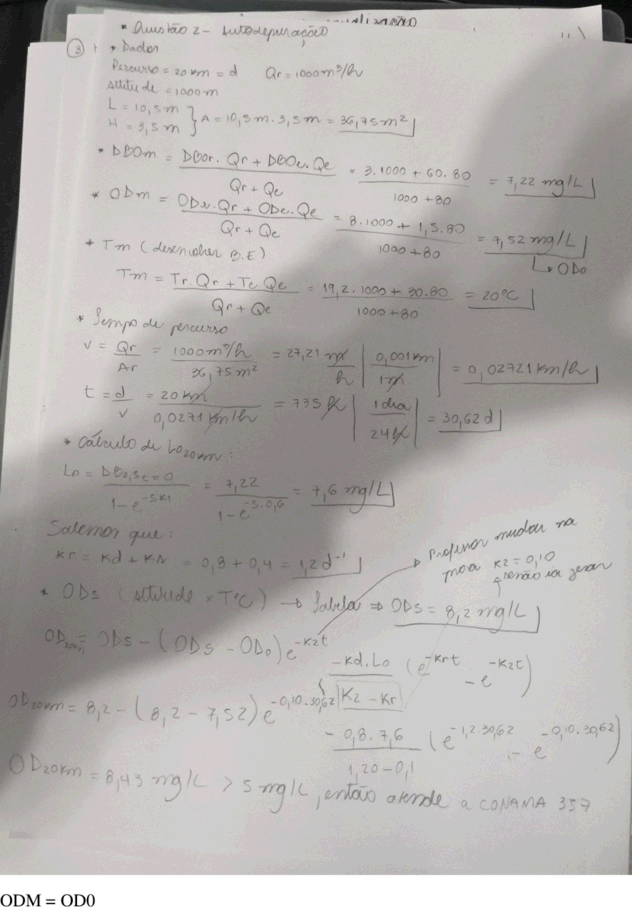 * Questão 2 - Autodepuração
③ * Dados
Percurso = 20 km = d Qr = 1000 m³/h
Altitude = 1000 m
L = 10,5 m
H = 3,5 m } A = 10,5 m . 3,5 m = 36,75 m²
* DBOm = DBOr. Qr + DBOe. Qe / Qr + Qe = 3.1000 + 60.80 / 1000 + 80 = 7,22 mg/L
* ODm = ODr. Qr + ODe. Qe / Qr + Qe = 8.1000 + 1,5.80 / 1000 + 80 = 7,52 mg/L
↳ ODo
* Tm (desenvolver B.E)
Tm = Tr. Qr + Te. Qe / Qr + Qe = 19,2.1000 + 30.80 / 1000 + 80 = 20°C
* Tempo de percurso
v = Qr / Ar = 1000 m³/h / 36,75 m² = 27,21 m / h | 0,001 km / 1 m | = 0,02721 km/h
t = d / v = 20 km / 0,0271 km/h = 735 h | 1 dia / 24 h | = 30,62 d
* Cálculo de Lo20km:
Lo = DBO5, t=0 / 1 - e^-5K1 = 7,22 / 1 - e^-5.0,6 = 7,6 mg/L
Sabemos que:
Kr = Kd + Ks = 0,8 + 0,4 = 1,2 d⁻¹
→ Professor mudou na
prova K2 = 0,10
senão ia zerar
* ODs (altitude x T°C) → Tabela ⇒ ODs = 8,2 mg/L
OD20km = ODs - (ODs - ODo) e^-K2t - Kd. Lo / K2 - Kr (e^-Krt - e^-K2t)
OD20km = 8,2 - (8,2 - 7,52) e^-0,10.30,62 - 0,8.7,6 / 1,20 - 0,1 (e^-1,2.30,62 - e^-0,10.30,62)
OD20km = 8,43 mg/L > 5 mg/L, então atende a CONAMA 357
ODM = OD0